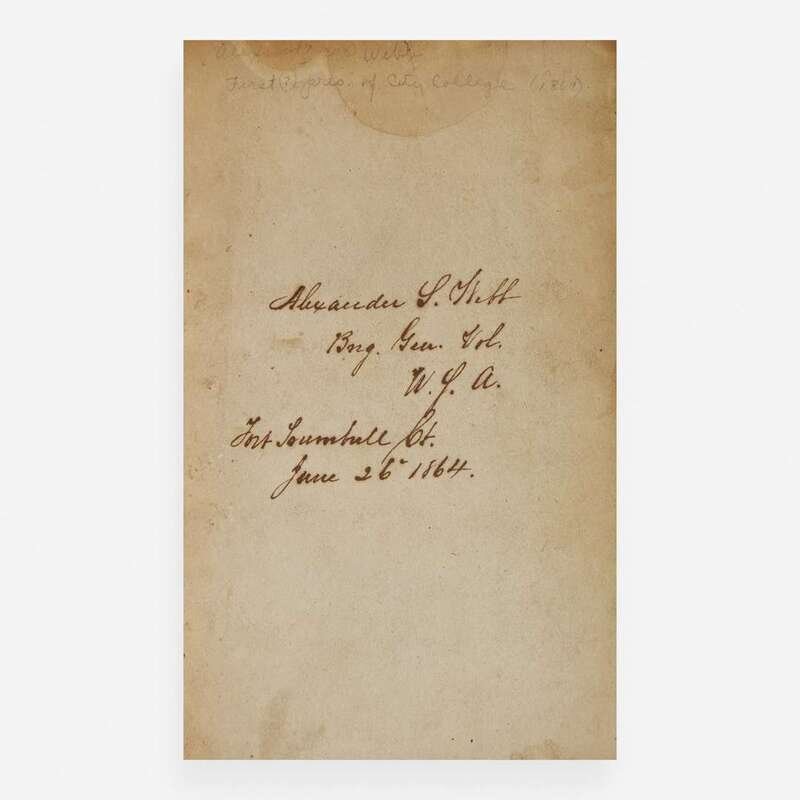 Webb
First (?) pres. of City College
Alexander S. Webb
Brig. Gen. Vol.
U. S. A.
Fort Trumbull Ct.
June 26 1864.